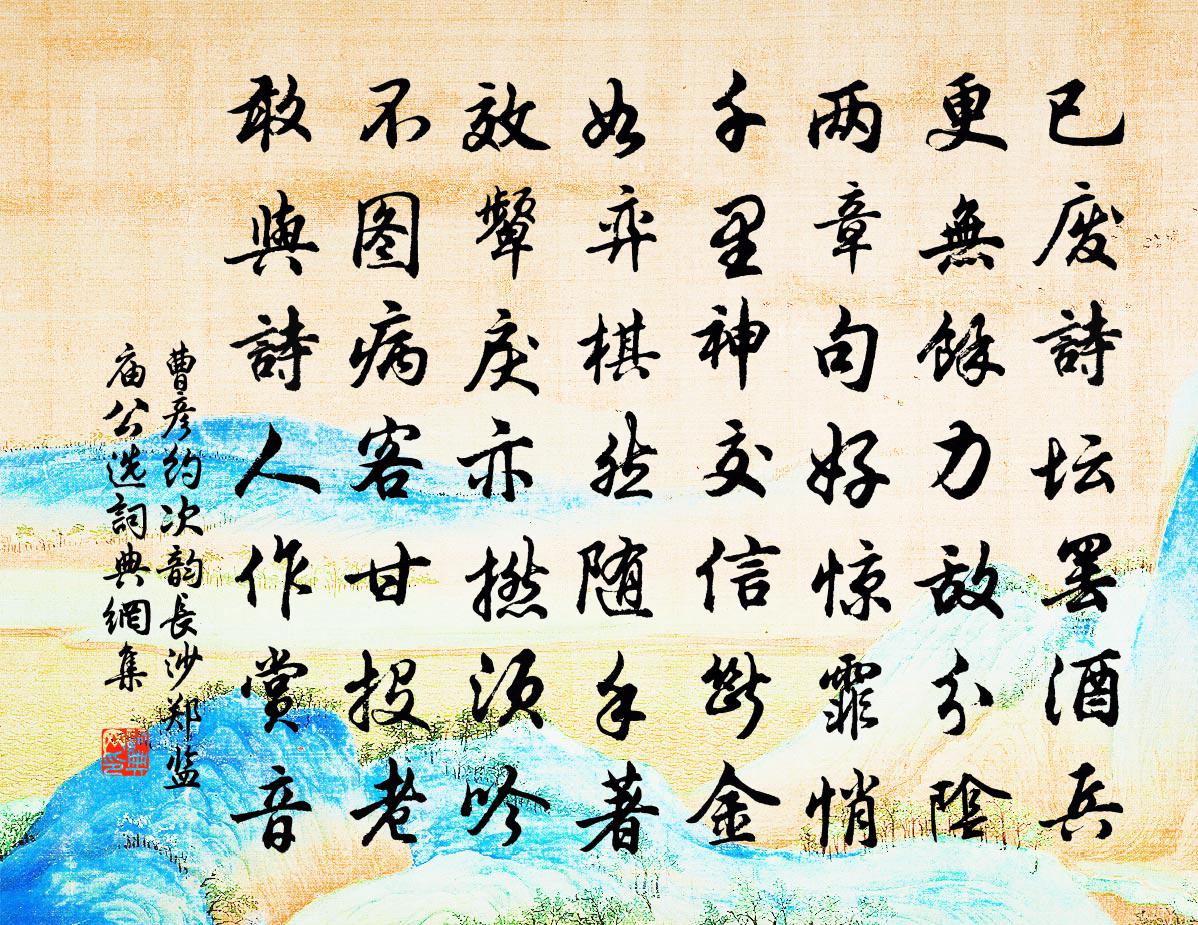 已废詩坛罢酒兵
更無餘力敌分陰
两章句好惊霏悄
千里神交信断金
如弈棋然随手著
效颦戾亦撚须吟
不图病客甘投老
敢與詩人作赏音
曹彦约次韵長沙郑监
庙公选詞典網集